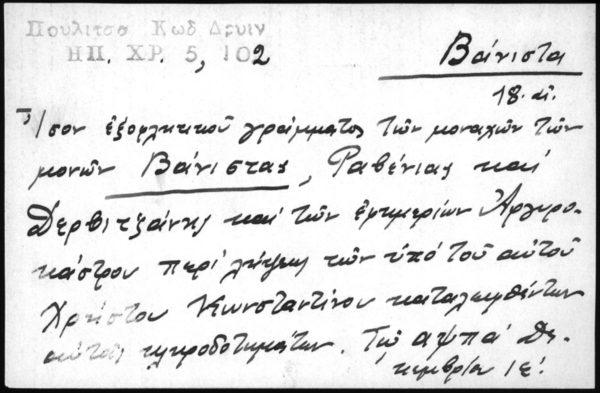 Πουλιτσα Κωδ Δρυιν
ΗΠ. ΧΡ. 5, 102
Βάνιστα
18. αἰ.
Ἴσον ἐξοφλητικοῦ γράμματος τῶν μοναχῶν τῶν
μονῶν Βάνιστας, Ραβένιας καὶ
Δερβιτζάνης καὶ τῶν ἐφημερίων Ἀργυρο-
κάστρου περὶ λήψεως τῶν ὑπὸ τοῦ αὐτοῦ
Χρήστου Κωνσταντίνου καταλειφθέντων
αὐτοῖς κληροδοτημάτων. Τῷ αψπα΄ Δε-
κεμβρίου ιε΄.